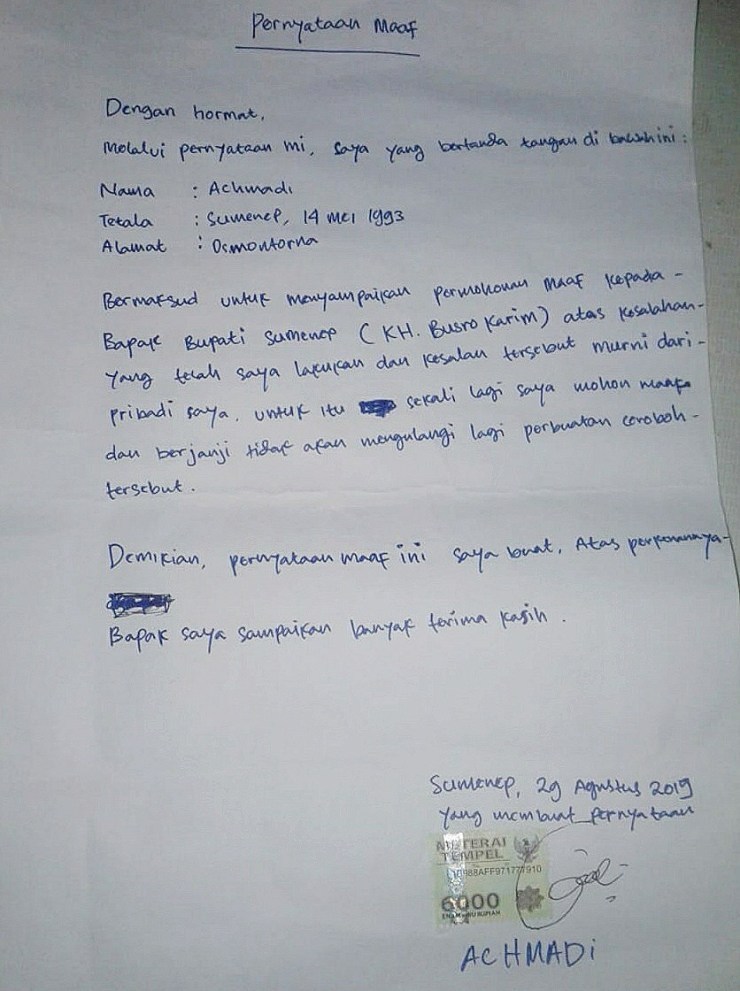 Pernyataan Maaf
Dengan hormat,
Melalui pernyataan ini, saya yang bertanda tangan di bawah ini :
Nama : Achmadi
Tetala : Sumenep, 14 Mei 1993
Alamat :
Bermaksud untuk menyampaikan permohonan maaf kepada -
Bapak Bupati Sumenep (KH. Busro Karim) atas kesalahan -
yang telah saya lakukan dan kesalan tersebut murni dari -
pribadi saya, untuk itu sekali lagi saya mohon maaf
dan berjanji tidak akan mengulangi lagi perbuatan ceroboh -
tersebut.
Demikian, pernyataan maaf ini saya buat, Atas
Bapak saya sampaikan banyak terima kasih .
Sumenep, 29 Agustus 2019
yang membuat pernyataan
METERAI
TEMPEL
AFF971777910
6000
ENAM RIBU RUPIAH
ACHMADI